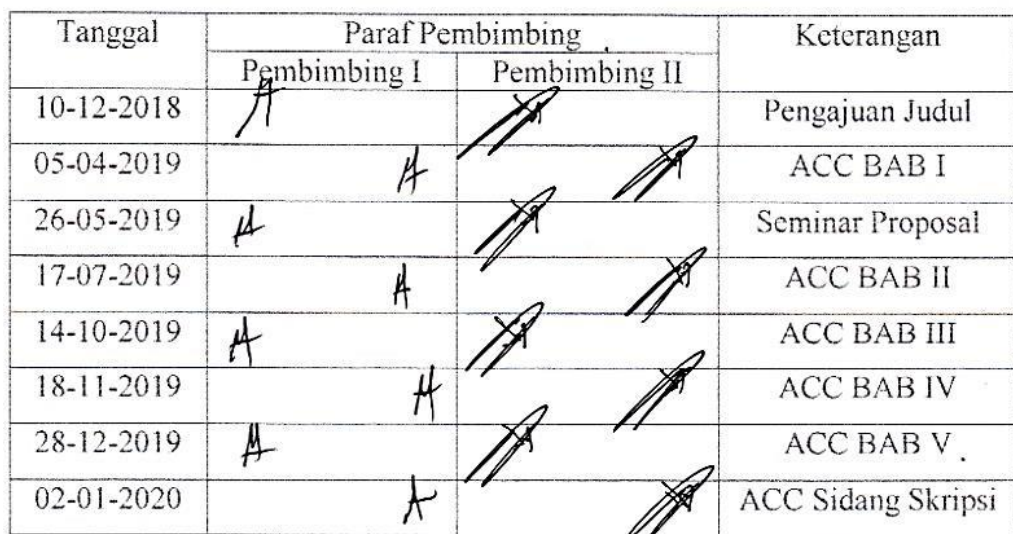 Tanggal Paraf Pembimbing Keterangan
Pembimbing I Pembimbing II
10-12-2018 Pengajuan Judul
05-04-2019 ACC BAB I
26-05-2019 Seminar Proposal
17-07-2019 ACC BAB II
14-10-2019 ACC BAB III
18-11-2019 ACC BAB IV
28-12-2019 ACC BAB V
02-01-2020 ACC Sidang Skripsi